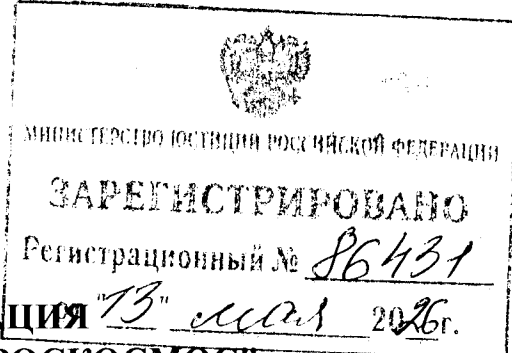 МИНИСТЕРСТВО ЮСТИЦИИ РОССИЙСКОЙ ФЕДЕРАЦИИ
ЗАРЕГИСТРИРОВАНО
Регистрационный № 86431
ЦИЯ "13" мая 2026г.
РОСКОСМОС"